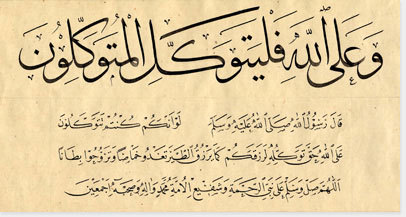 وَعَلَى اللهِ فَلْيَتَوَكَّلِ الْمُتَوَكِّلُونَ
قَالَ رَسُولُ اللهِ صَلَّى اللهُ عَلَيْهِ وَسَلَّمَ لَوْ أَنَّكُمْ كُنْتُمْ تَوَكَّلُونَ
عَلَى اللهِ حَقَّ تَوَكُّلِهِ لَرُزِقْتُمْ كَمَا يُرْزَقُ الطَّيْرُ تَغْدُو خِمَاصًا وَتَرُوحُ بِطَانًا
اللهم صل وسلم على نبي الرحمة وشفيع الأمة محمد وآله وصحبه أجمعين